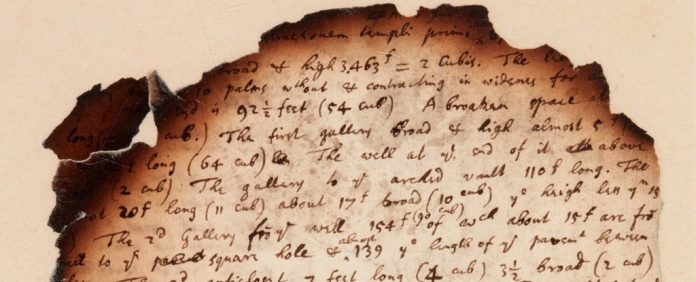 inctionem templi prime
road & high 3.463f = 2 cubis. The
10 palms without & contracting in widenes for
nd is 92½ feet (54 cub) A broaken space
long cub.) The first gallery broad & high almost 5
f long (64 cub) The well at ye end of it above
(2 cub) The gallery to ye arched vault 110f long. The
ot 20f long (11 cub) about 17f broad (10 cub) ye heigh 15
) The 2d Gallery frō ye well 154f (90 cub) of wch about 15f are frō
ll to ye square hole & almost 139 ye length of ye pavemt between
7 feet long (4 cub) 3½ broad (2 cub)